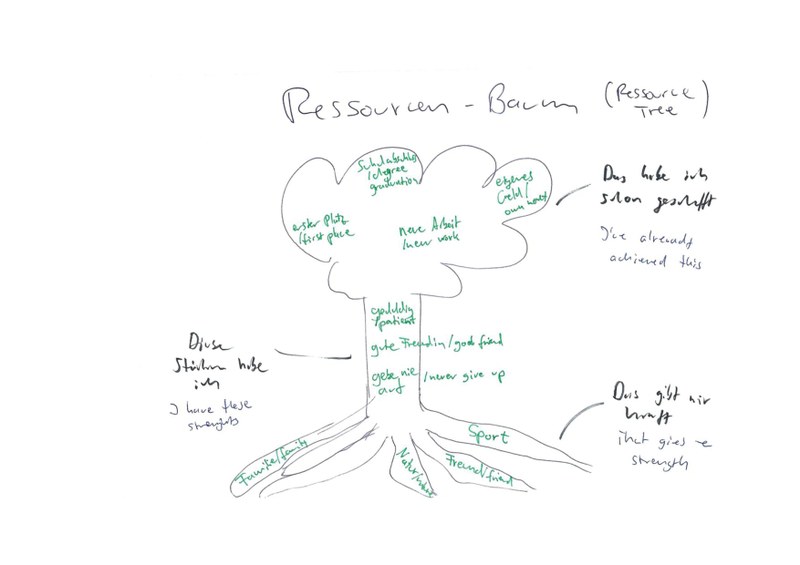 Ressourcen - Baum
(Ressource
Tree)
Schulabschluss
/degree
graduation
eigenes
Geld/
own money
erster Platz
/first place
neue Arbeit
/new work
Das habe ich
schon geschafft
I've already
achieved this
geduldig
/patient
gute Freundin/good friend
gebe nie
auf
/never give up
Diese
Stärken habe
ich
I have these
strengths
Das gibt mir
Kraft
that gives me
strength
Familie/family
Natur/nature
Freund/friend
Sport